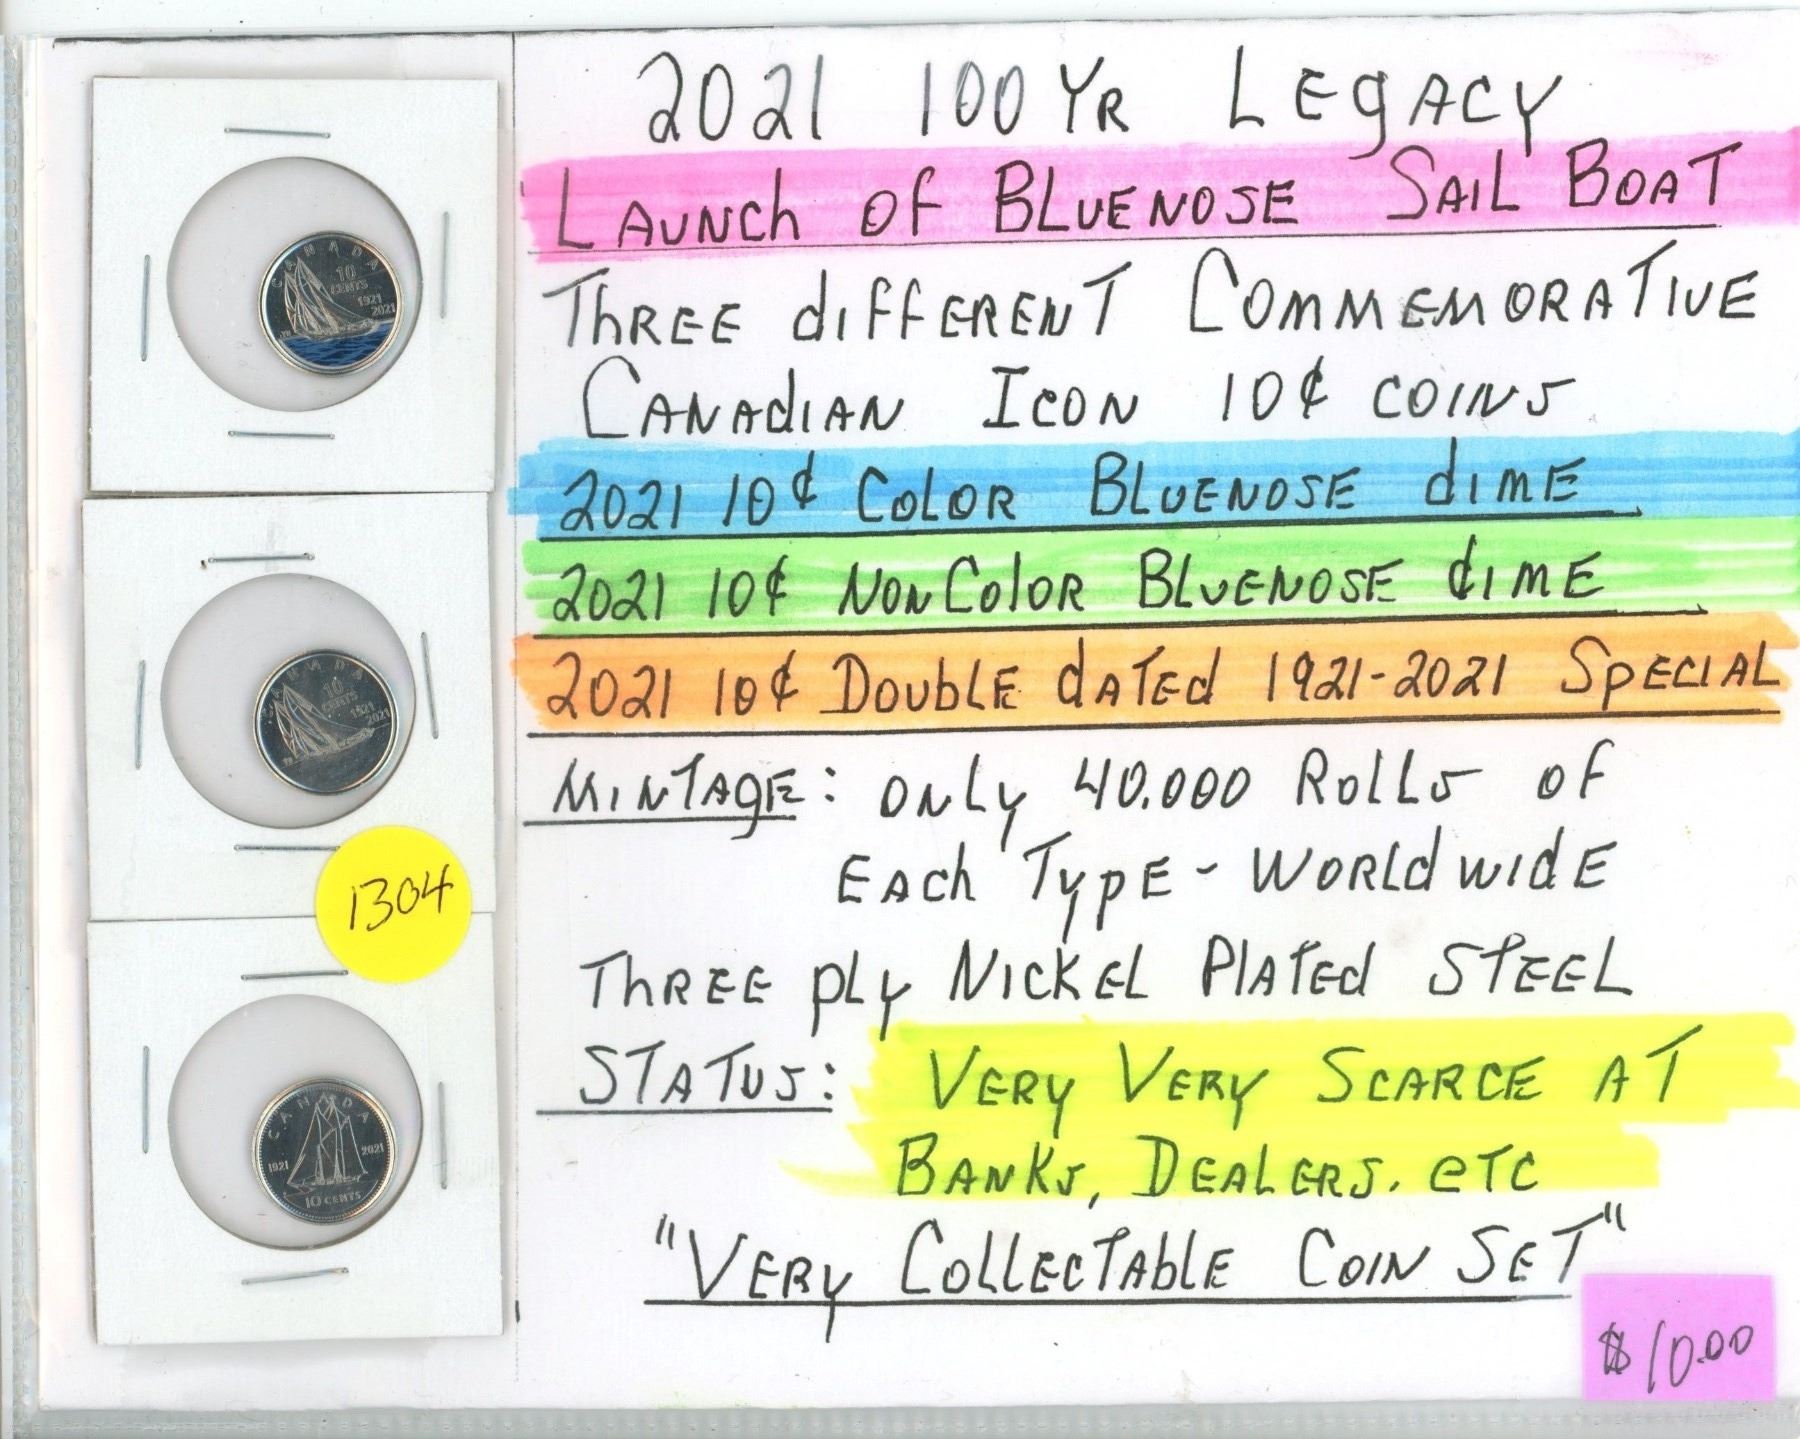 2021 100 YR LEGACY
LAUNCH OF BLUENOSE SAIL BOAT
THREE dIFFERENT COMMEMORATIVE
CANAdIAN ICON 10¢ COINS
2021 10¢ COLOR BLUENOSE dIME
2021 10¢ NON COLOR BLUENOSE dIME
2021 10¢ DOUBLE dATEd 1921-2021 SPECIAL
MINTAGE: ONLY 40.000 ROLLS OF
EACH TYPE - WORLDWIDE
THREE PLY NICKEL PLATED STEEL
STATUS: VERY VERY SCARCE AT
BANKS, DEALERS. ETC
"VERY COLLECTABLE COIN SET"
$10.00
CANADA
10
CENTS
1921
2021
CANADA
10
CENTS
1921
2021
1304
CANADA
1921 2021
10 CENTS